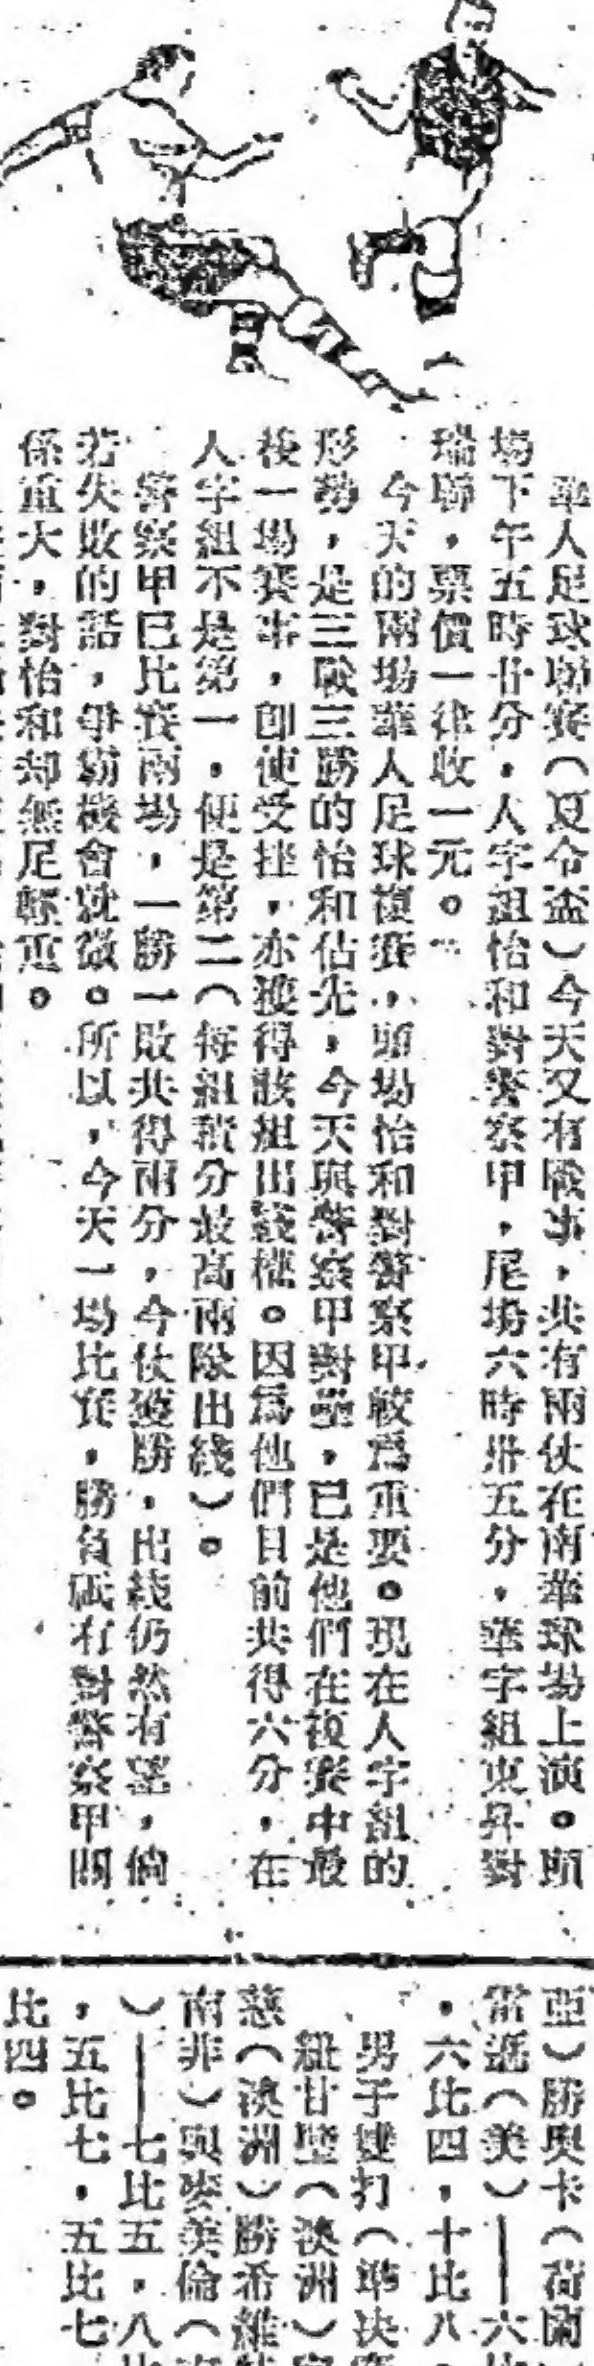 華人足球聯賽（夏令盃）今天又有戰事，共有兩仗在南華球場上演。頭
場下午五時廿分，人字組怡和對警察甲，尾場六時卅五分，華字組東昇對
瑞聯，票價一律收一元。
今天的兩場華人足球複賽，頭場怡和對警察甲較爲重要。現在人字組的
形勢，是三戰三勝的怡和佔先，今天與警察甲對壘，已是他們在複賽中最
後一場賽事，卽使受挫，亦獲得該組出綫權。因爲他們目前共得六分，在
人字組不是第一，便是第二（每組積分最高兩隊出綫）。
警察甲已比賽兩場，一勝一敗共得兩分，今仗獲勝，出綫仍然有望，倘
若失敗的話，爭霸機會就微。所以，今天一場比賽，勝負祇有對警察甲關
係重大，對怡和却無足輕重。
亞）勝奧卡（荷蘭
雷遜（美）——六比
，六比四，十比八，
男子雙打（準決賽
紐甘堅（澳洲）
慈（澳洲）勝希維
南非）與麥美倫（
）——七比五，八比
，五比七，五比七
比四。